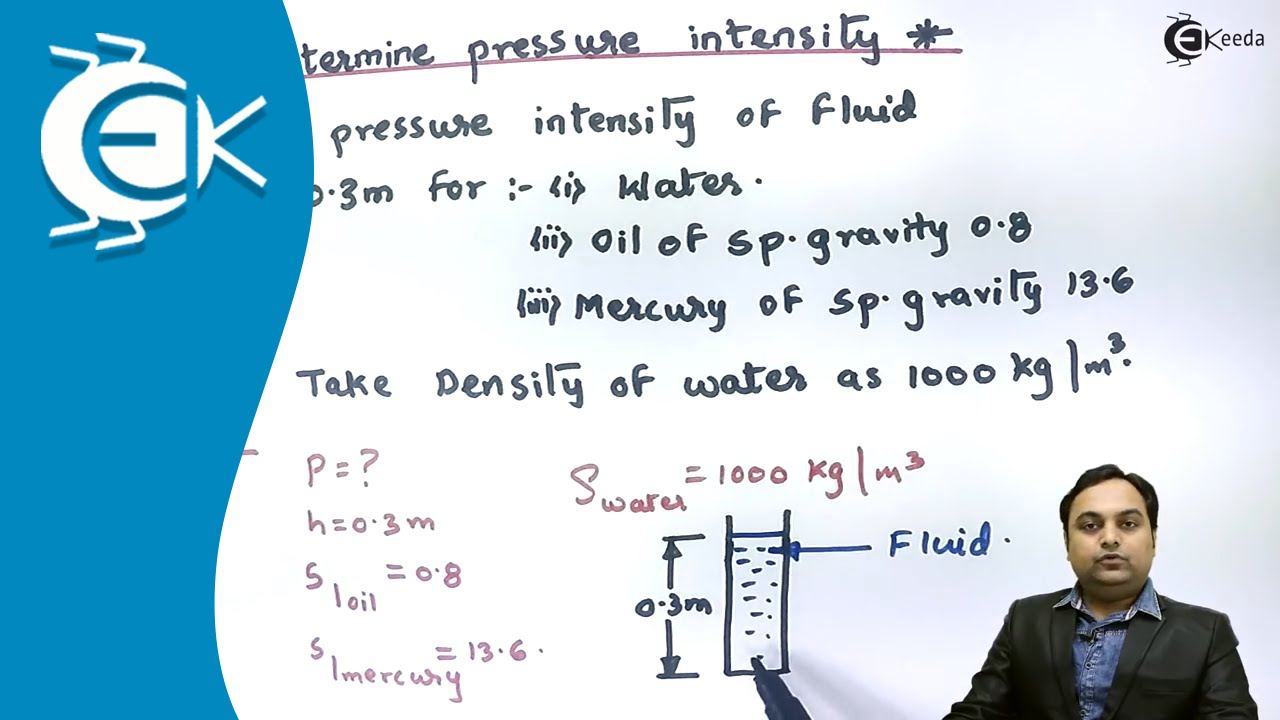 termine pressure intensity *
Keeda
pressure intensity of Fluid
0.3m for :- (i) Water.
(ii) Oil of sp. gravity 0.8
(iii) Mercury of sp. gravity 13.6
Take Density of water as 1000 kg/m³.
P = ?
h = 0.3m
S|oil = 0.8
S|mercury = 13.6.
ρwater = 1000 kg/m³
Fluid.
0.3m